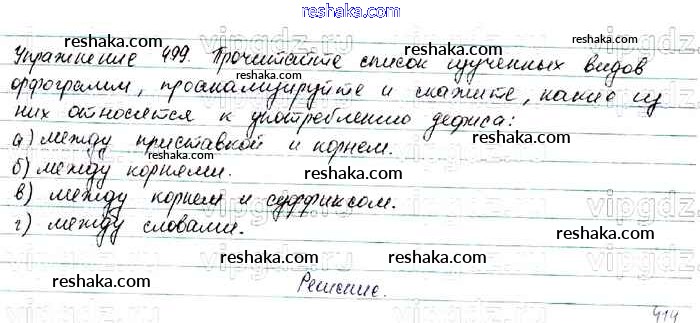 reshaka.com
reshaka.com reshaka.com
Упражнение 499. Прочитайте список изученных видов
reshaka.com
орфограмм, проанализируйте и скажите, какие из
них относятся к употреблению дефиса:
reshaka.com reshaka.com
а) между приставкой и корнем.
reshaka.com
б) между корнями.
reshaka.com reshaka.com
в) между корнем и суффиксом.
reshaka.com
г) между словами.
reshaka.com reshaka.com
reshaka.com
Решение.
reshaka.com reshaka.com
414